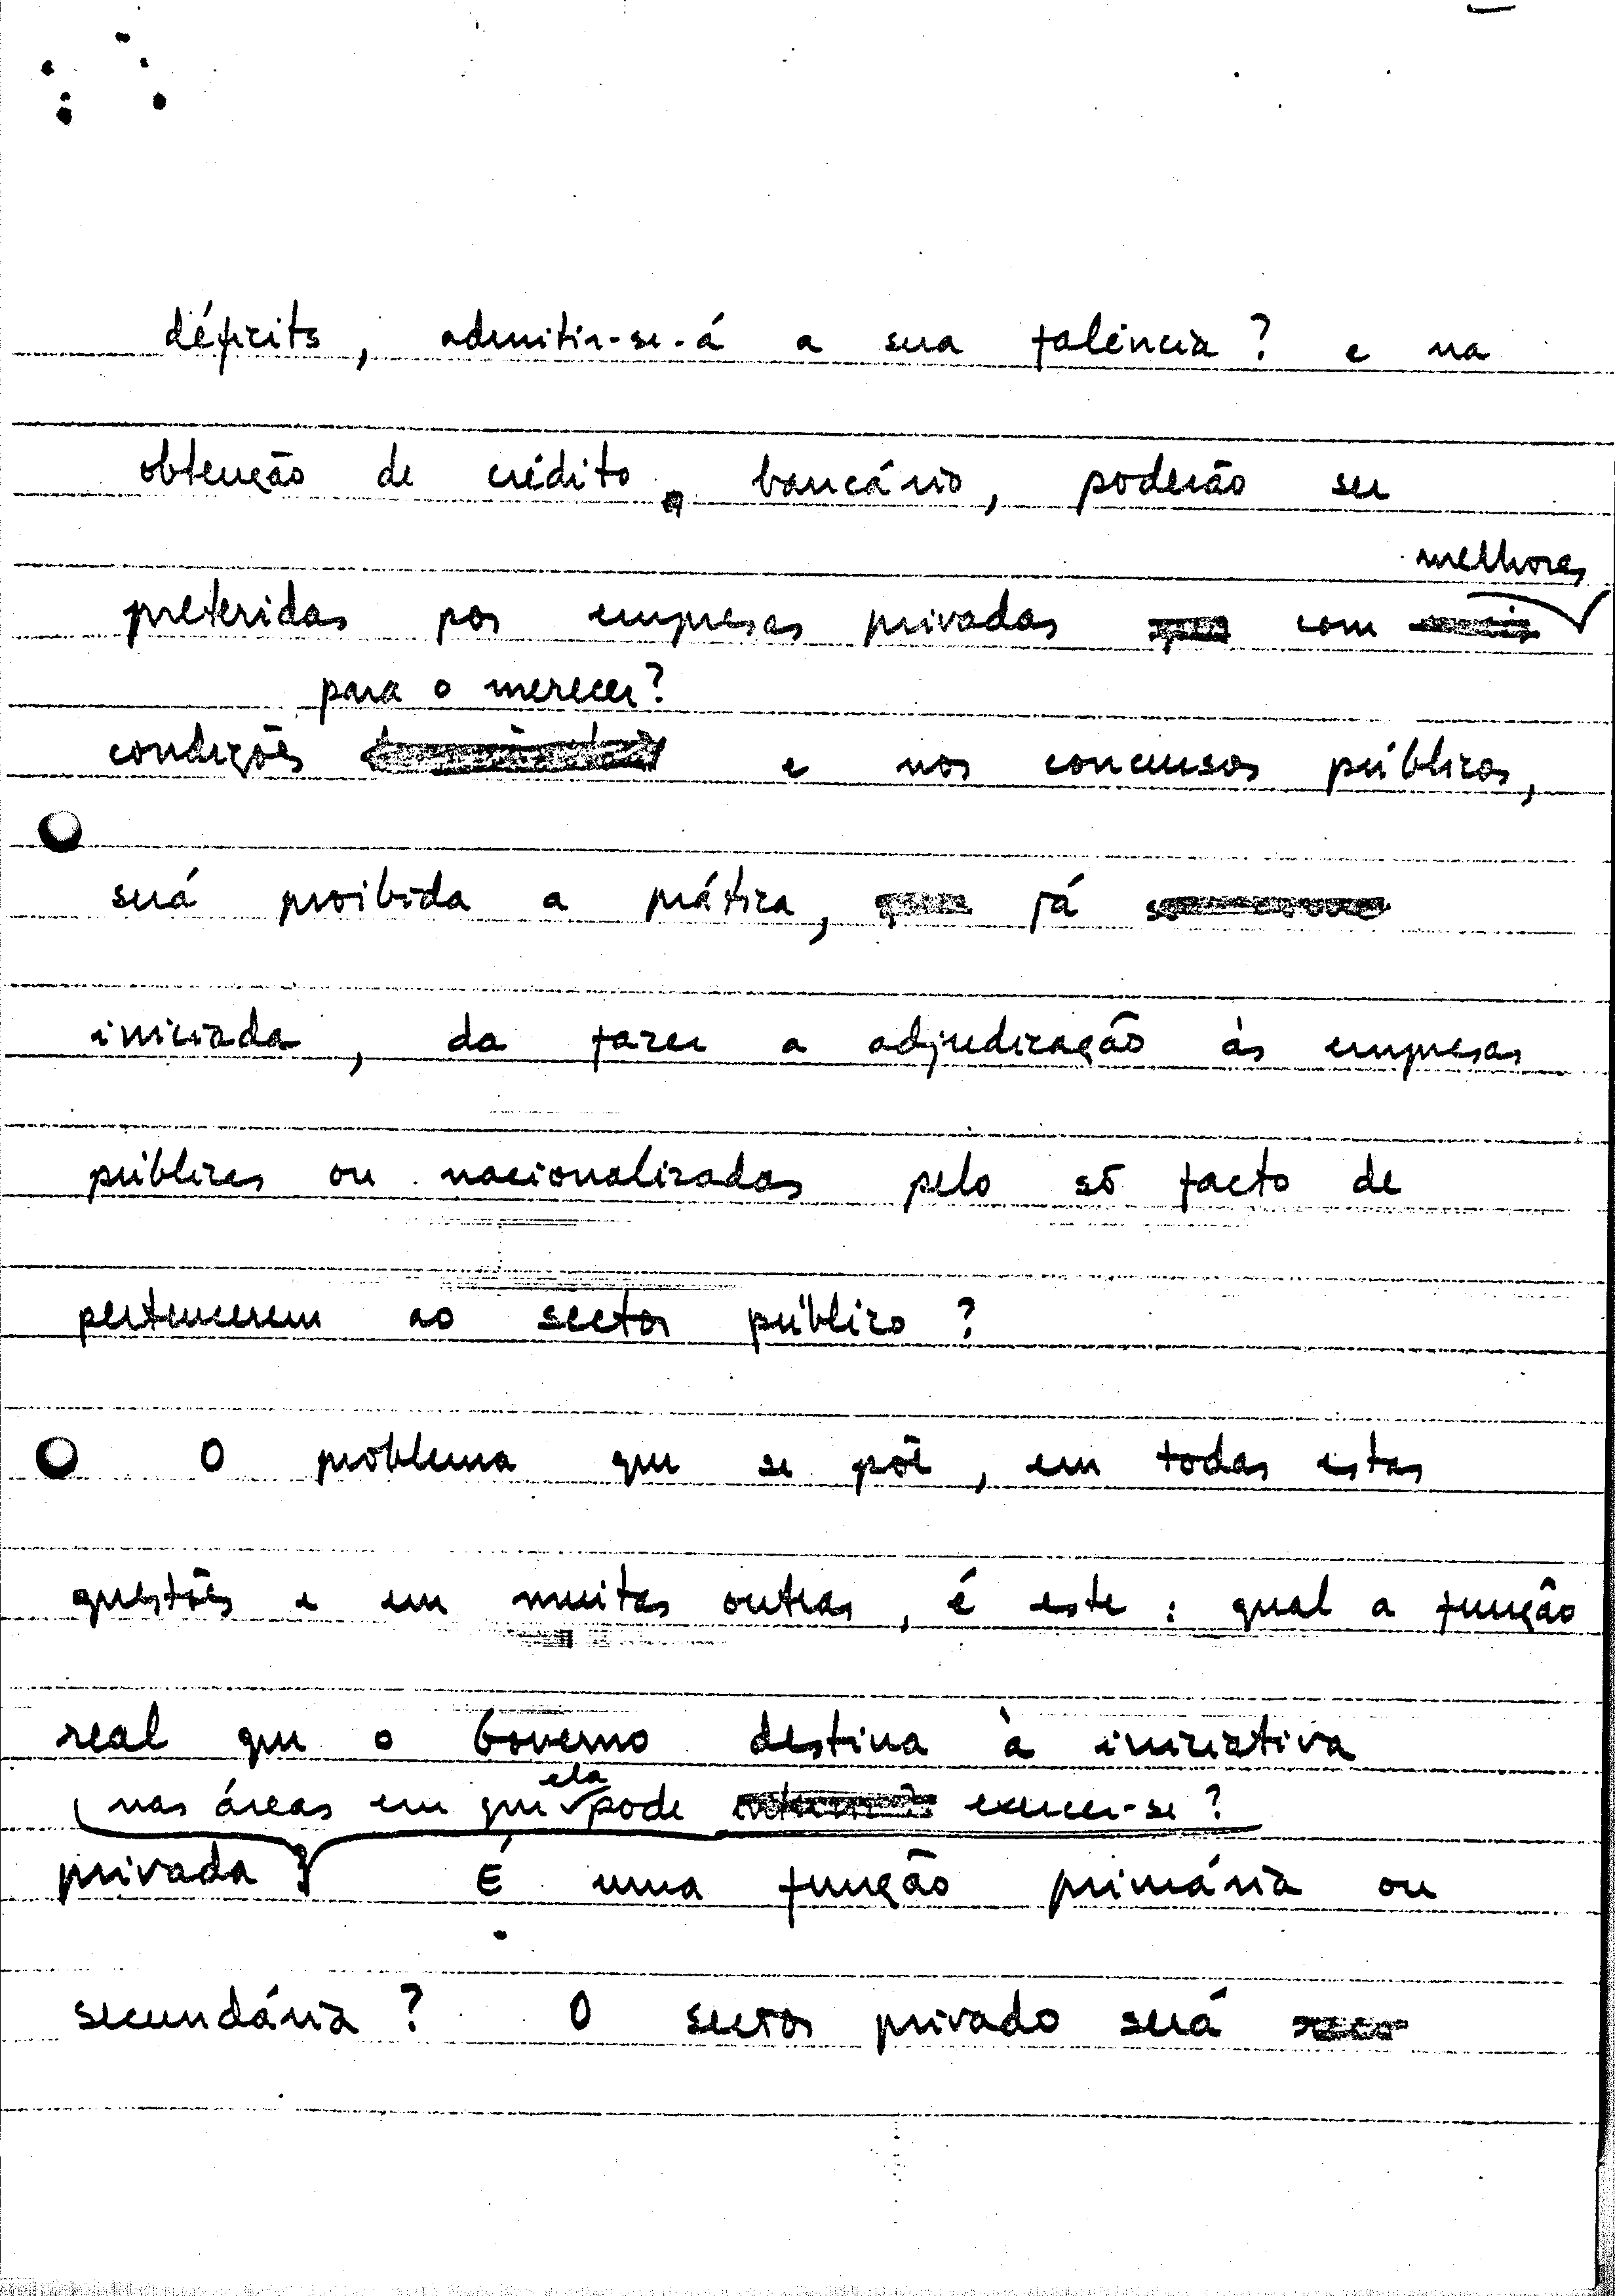 déficits, admitir-se-á a sua falência? e na
obtenção de crédito bancário, poderão ser
melhores
preteridas por empresas privadas com
para o merecer?
condições e nos concursos públicos,
será proibida a prática, já
iniciada, da fazer a adjudicação às empresas
públicas ou nacionalizadas pelo só facto de
pertencerem ao sector público?
O problema que se põe, em todas estas
questões e em muitas outras, é este: qual a função
real que o Governo destina à iniciativa
ela
nas áreas em que pode exercer-se?
privada É uma função primária ou
secundária? O sector privado será